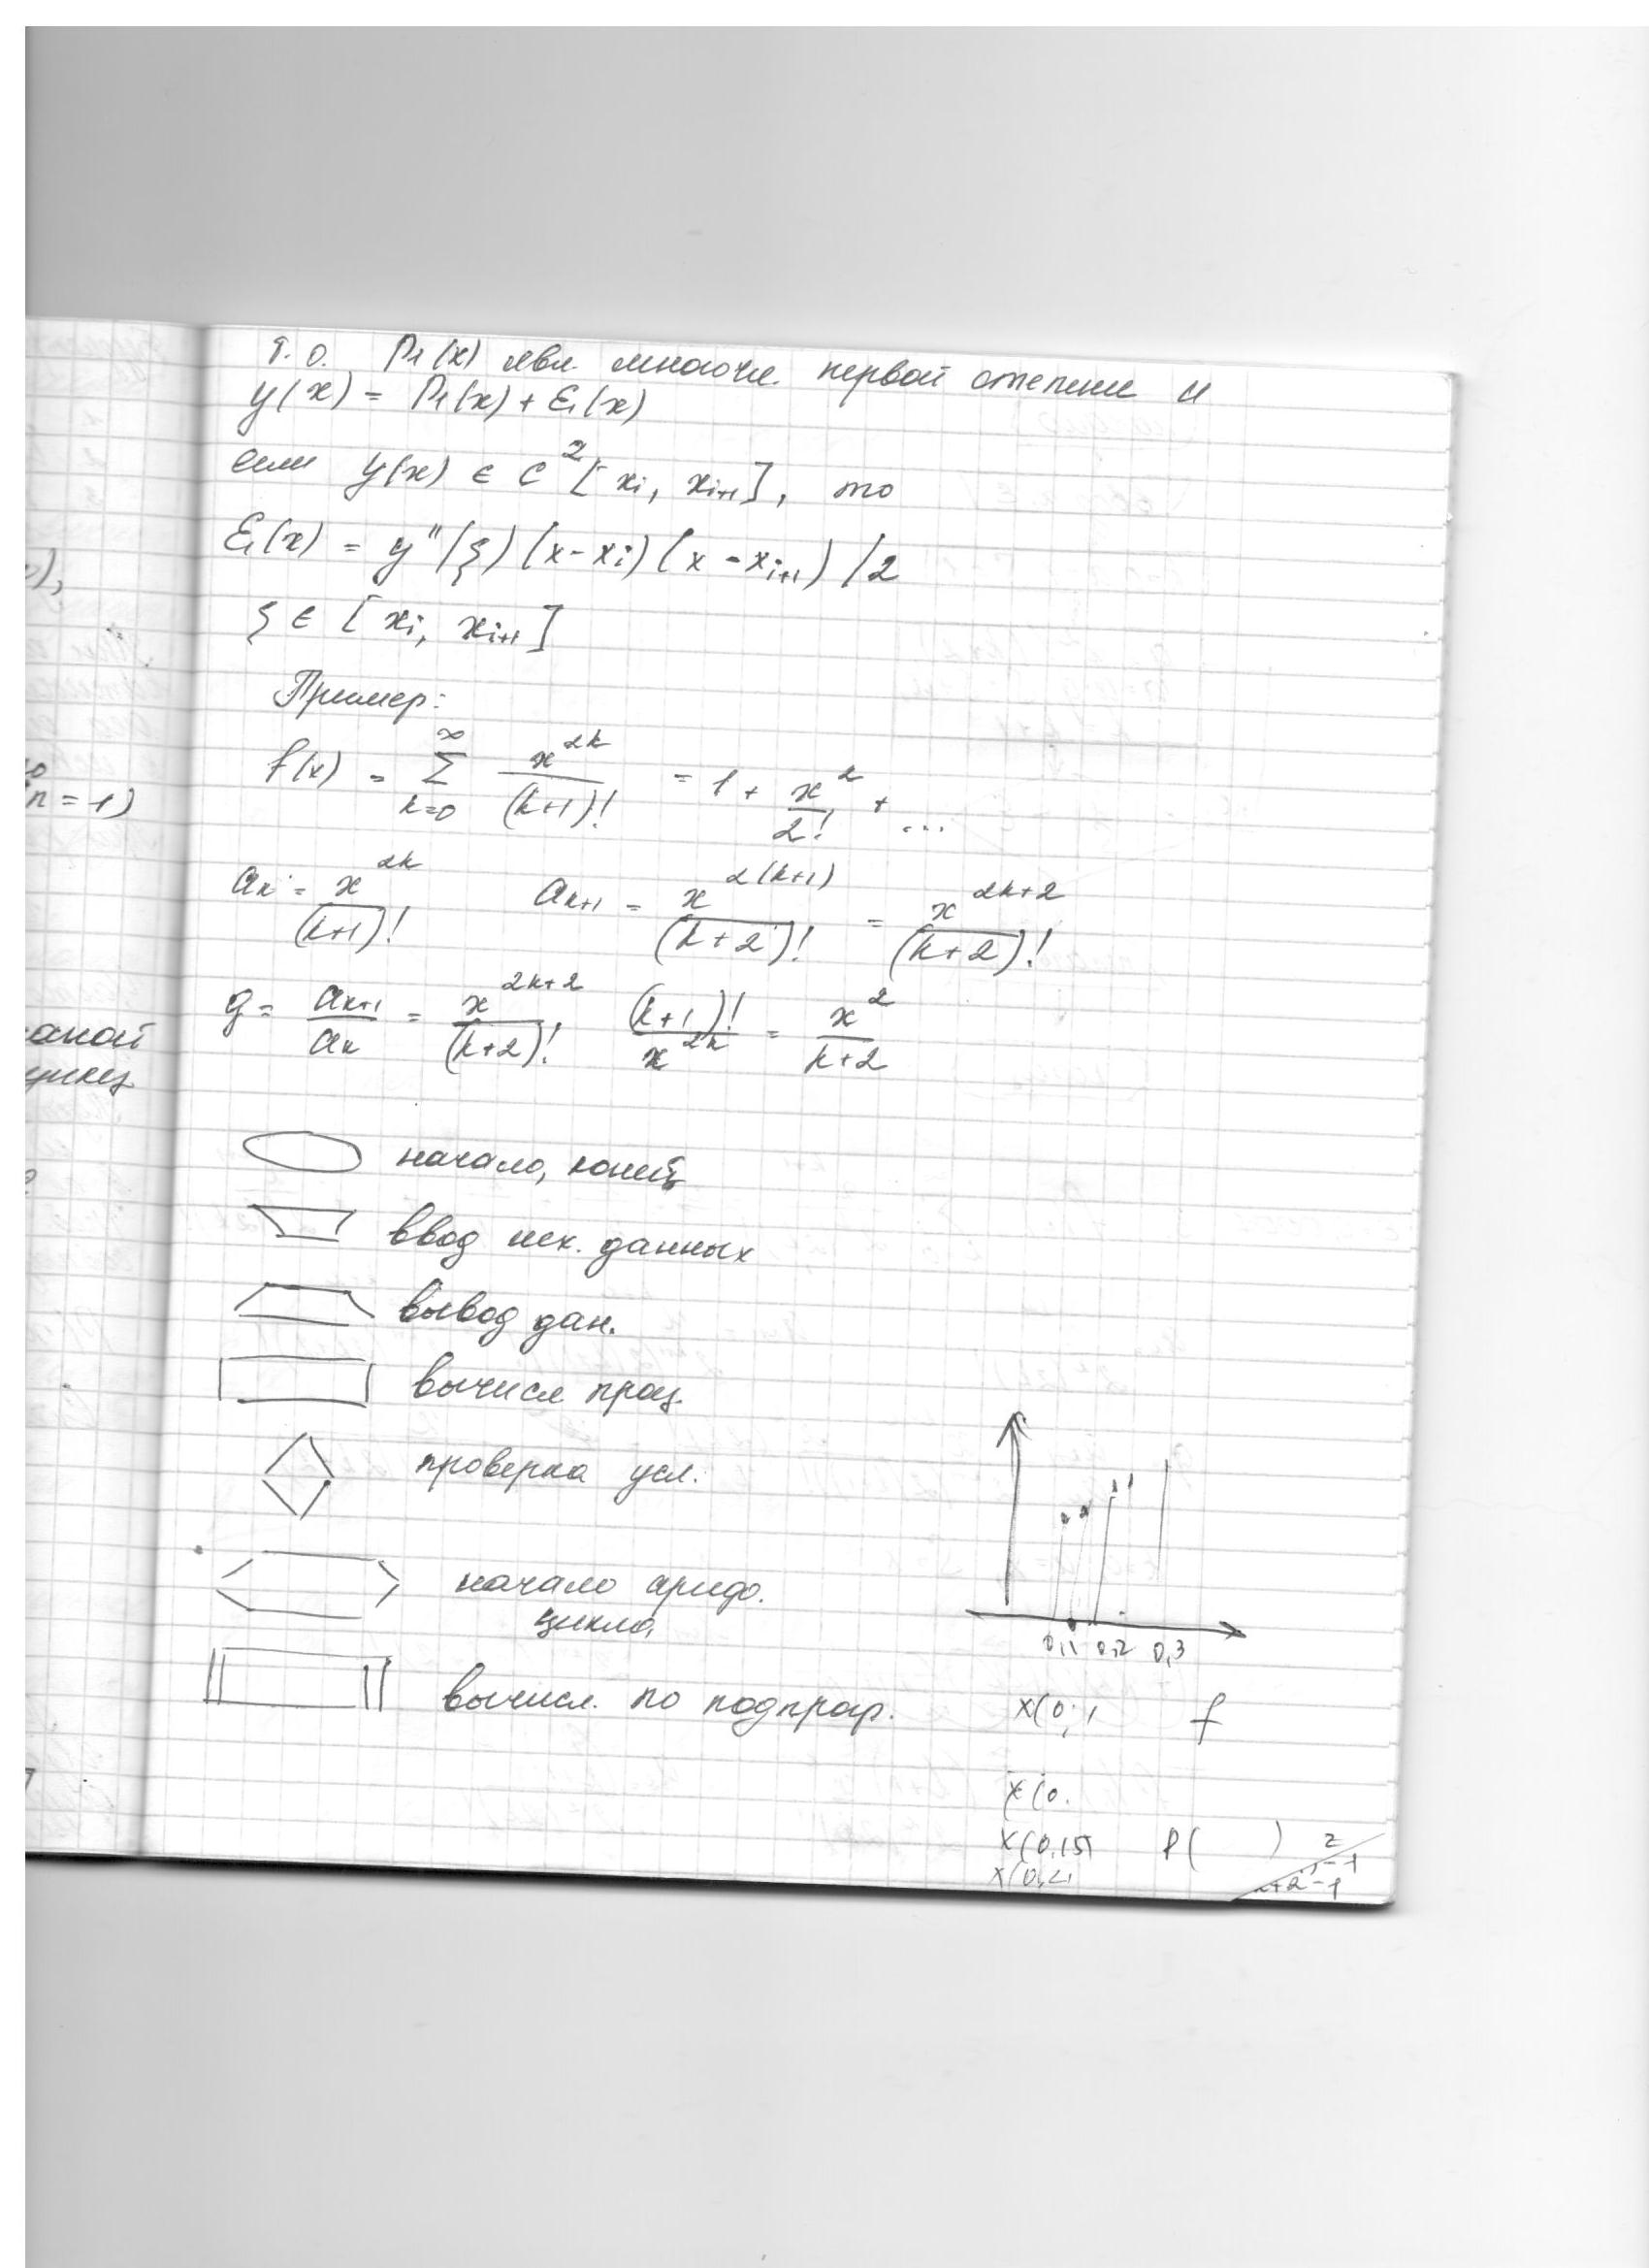 Т.о. P₁(x) явл. многочл. первой степени и
y(x) = P₁(x) + Ɛ₁(x)
если y(x) ∈ C²[xᵢ, xᵢ₊₁], то
Ɛ₁(x) = y''(ξ)(x-xᵢ)(x-xᵢ₊₁)/2
ξ ∈ [xᵢ, xᵢ₊₁]
Пример:
f(x) = ∑_{k=0}^{∞} x^{2k}/(k+1)! = 1 + x²/2! + ...
a_k = x^{2k}/(k+1)! a_{k+1} = x^{2(k+1)}/(k+2)! = x^{2k+2}/(k+2)!
g = a_{k+1}/a_k = x^{2k+2}/(k+2)! (k+1)!/x^{2k} = x²/k+2
начало, конец
ввод исх. данных
вывод дан.
вычисл проц.
проверка усл.
начало арифр.
цикла
вычисл. по подпрогр.
0,1 0,2 0,3
x(0,1 f
x(0.
x(0,15) P( )
x(0,2
),
(n=1)